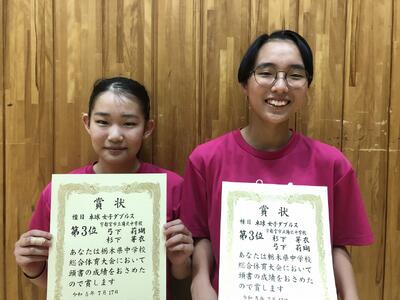 賞状
種目 卓球 女子ダブルス
宇都宮市立陽北中学校
第3位 弓下 莉瑚
杉下 芽衣
あなたは栃木県中学校
総合体育大会において
頭書の成績をおさめた
ので賞します
令和5年7月17日
賞状
種目 卓球 女子ダブルス
宇都宮市立陽北中学校
第3位 杉下 芽衣
弓下 莉瑚
あなたは栃木県中学校
総合体育大会において
頭書の成績をおさめた
ので賞します
令和5年7月17日